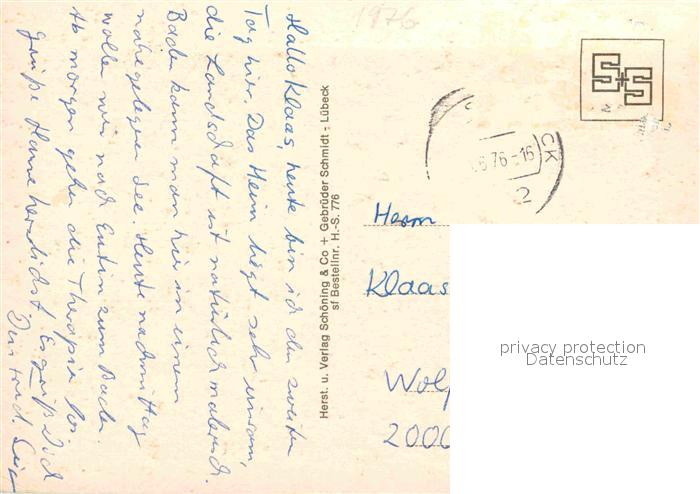 1976
Hallo Klaas, heute bin ich den zweiten
Tag hier. Das Heim liegt sehr einsam,
die Landschaft ist natürlich malerisch.
Baden kann man hier in einem
nahegelegenen See. Heute nachmittag
wollen wir nach Eutin zum Baden.
Ab morgen gehen die Therapien los.
Grüße Hanne herzlichst. Es grüßt Dich
Herst. u. Verlag Schöning & Co + Gebrüder Schmidt - Lübeck
sf Bestellnr. H.-S. 776
S+S
6.76-16
CK
2
Herrn
Klaas
Wolf
2000
privacy protection
Datenschutz